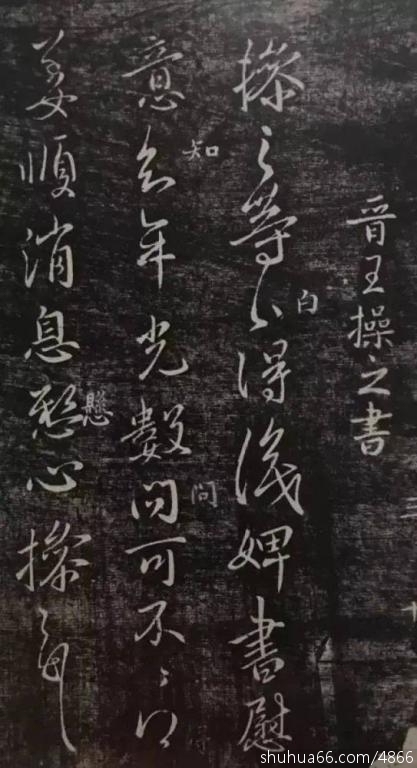 晋王操之書
操之等白得識婢書慰
白
意知年光數問可不〻得
知
問
姜順消息懸心操之
懸
shuhua66.com/4866